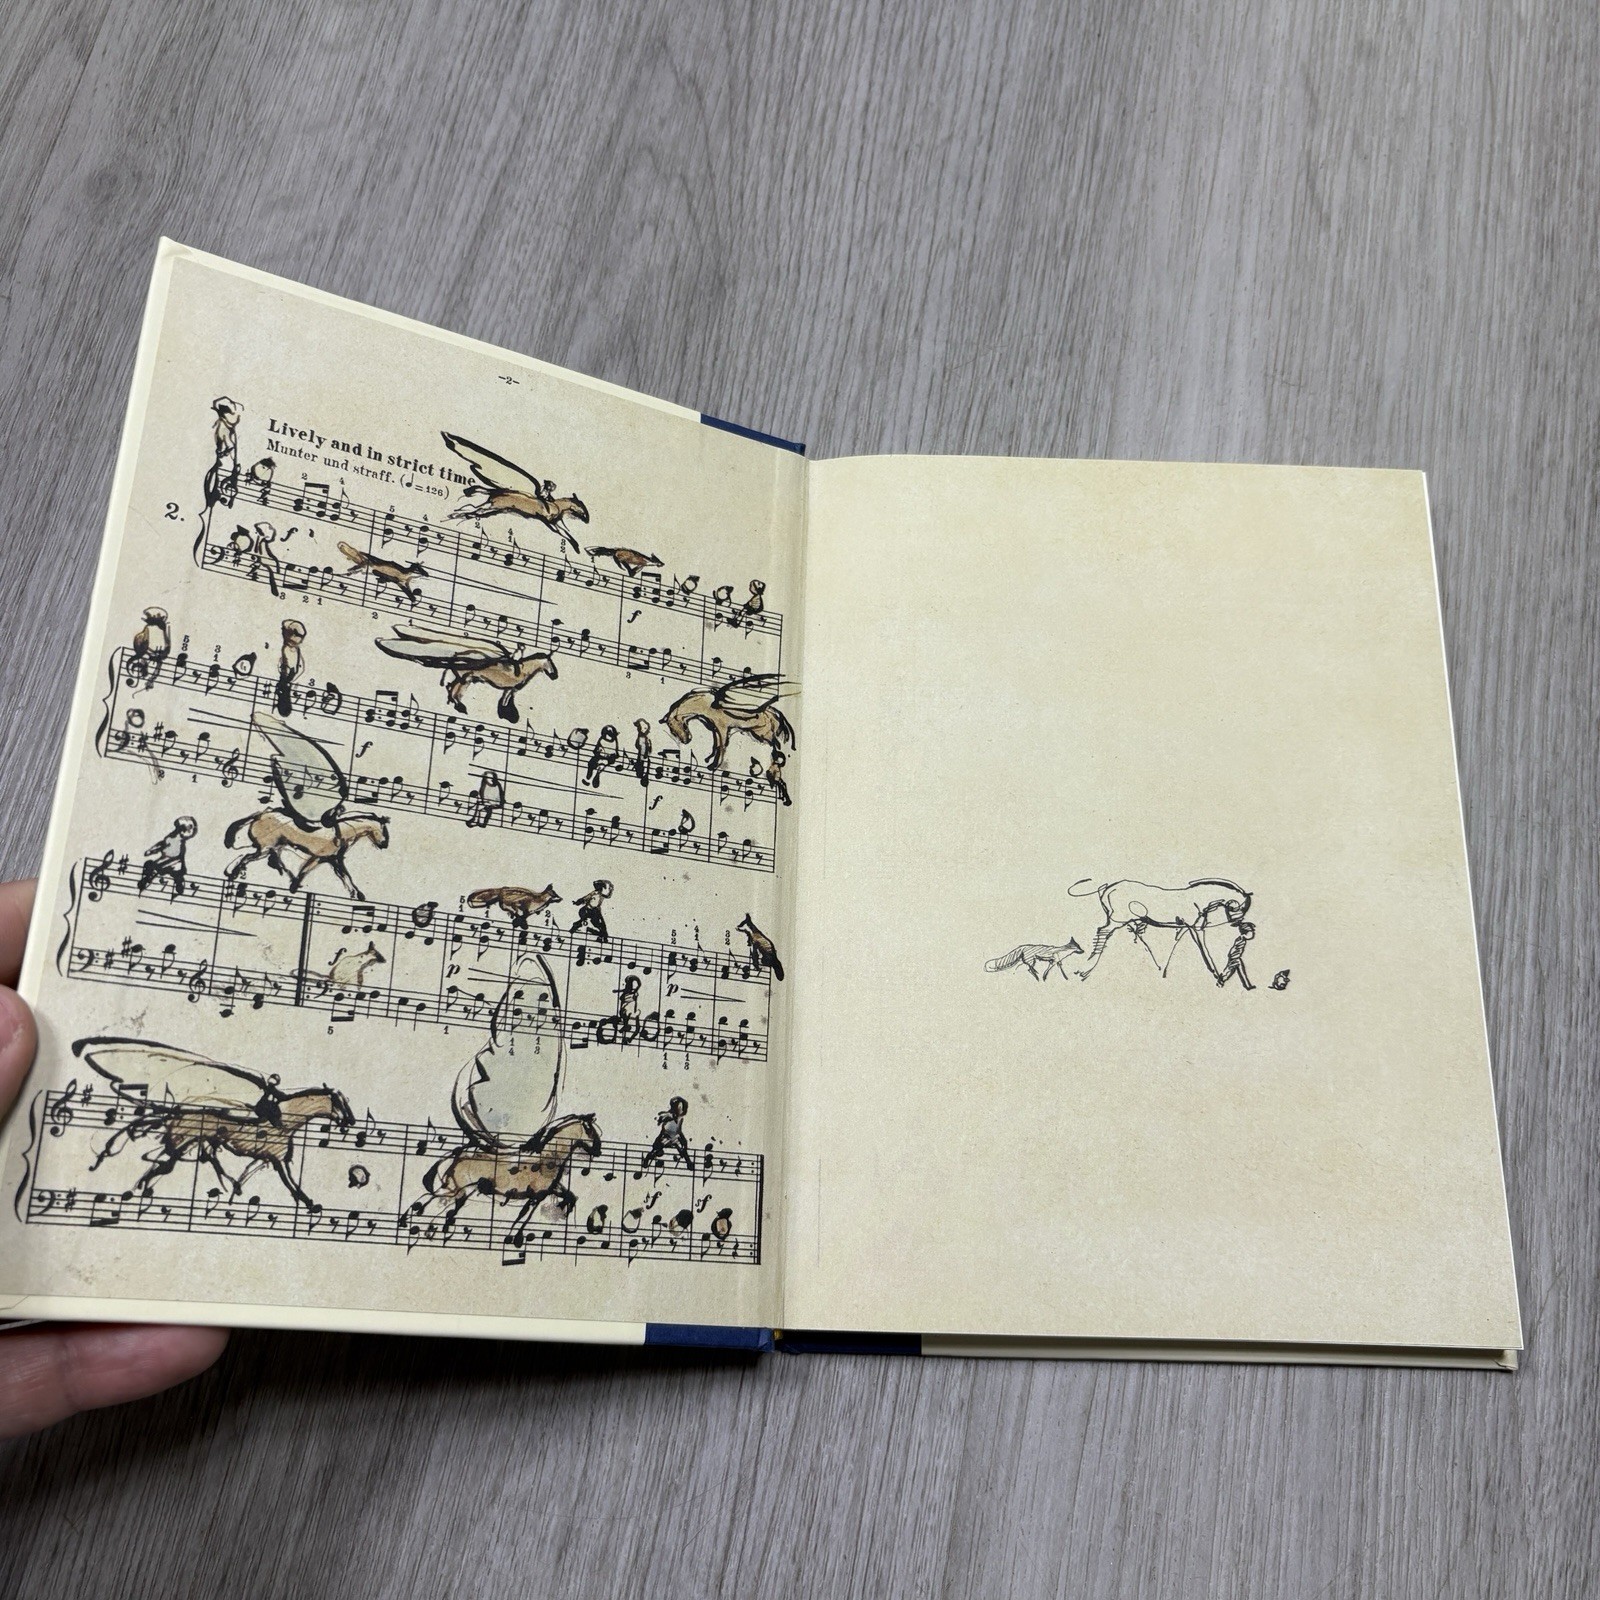 –2–
Lively and in strict time
Munter und straff. (♩=126)
2.